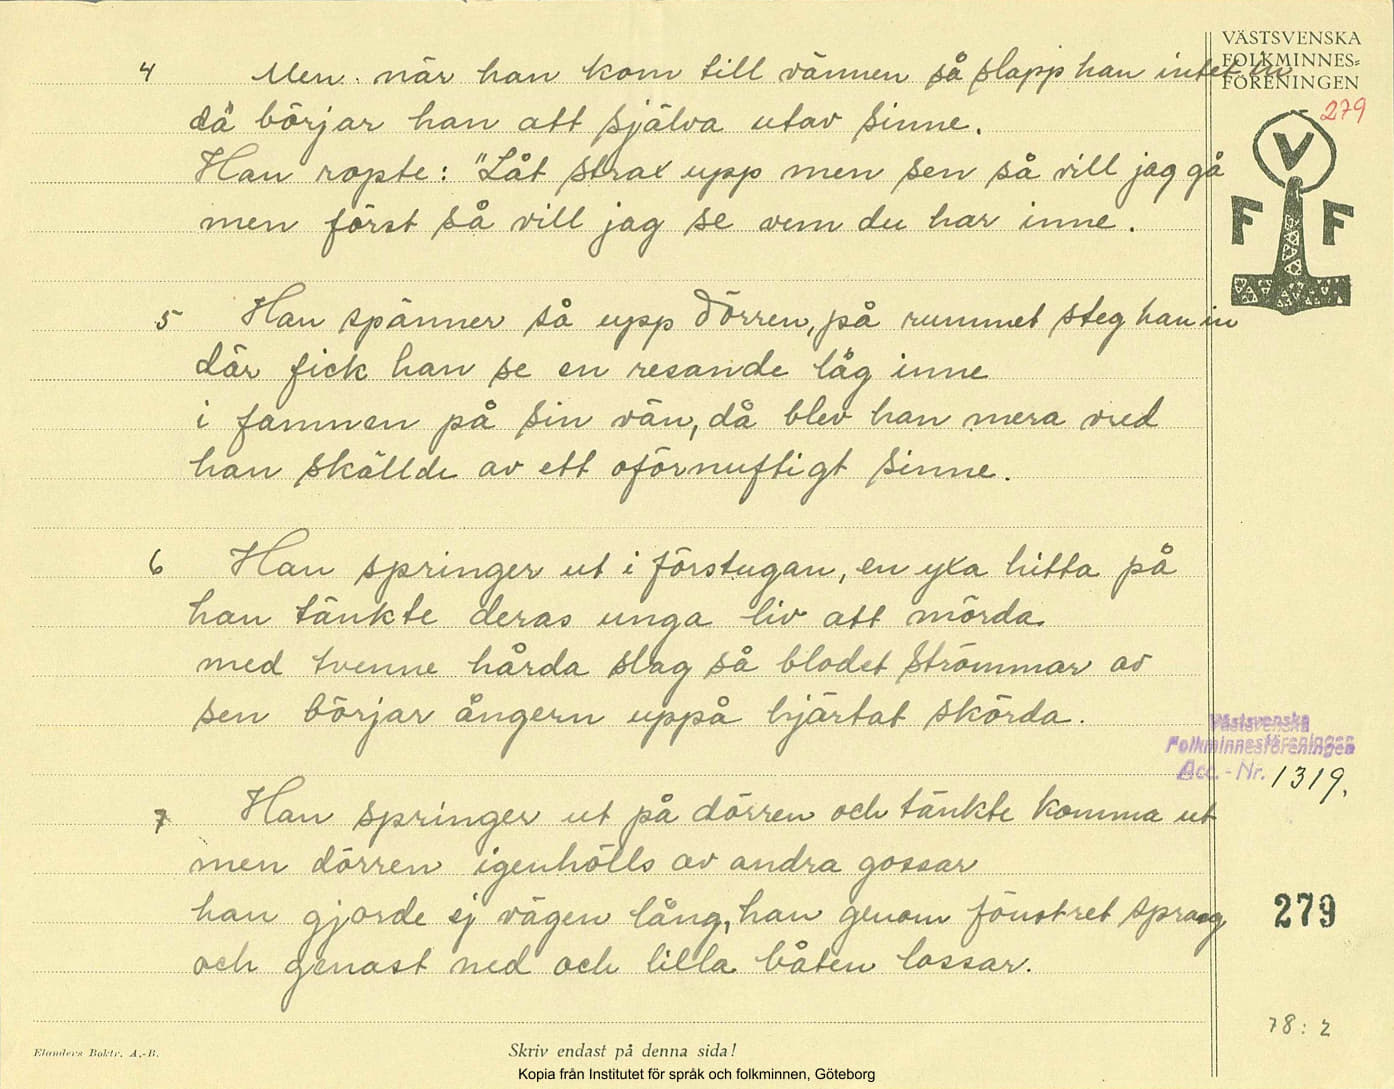 VÄSTSVENSKA
FOLKMINNES=
FÖRENINGEN
279
V
F F
4 Men när han kom till vännen så slapp han intet in
då börjar han att själva utav sinne.
Han ropte: "Låt strax upp men sen så vill jag gå
men först så vill jag se vem du har inne.
5 Han spänner så upp dörren, på rummet steg han in
där fick han se en resande låg inne
i famnen på sin vän, då blev han mera vred
han skällde av ett oförnuftigt sinne.
6 Han springer ut i förstugan, en yxa hitta på
han tänkte deras unga liv att mörda
med tvenne hårda slag så blodet strömmar av
sen börjar ångern uppå hjärtat skörda.
Västsvenska
Folkminnesföreningen
Acc.-Nr. 1319.
7 Han springer ut på dörren och tänkte komma ut
men dörren igenhölls av andra gossar
han gjorde ej vägen lång, han genom fönstret sprang
och genast ned och lilla båten lossar.
279
78:2
Elanders Boktr. A.-B.
Skriv endast på denna sida!
Kopia från Institutet för språk och folkminnen, Göteborg